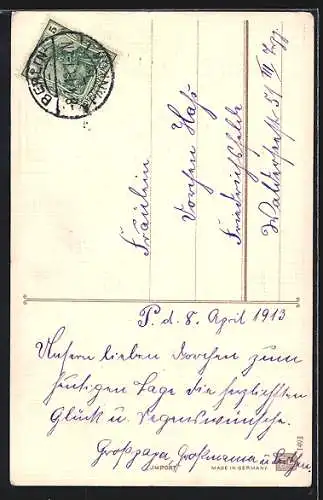 BERLIN
5
Fräulein
Dorchen Haß
Friedrichsfelde
Walderseestr. 51 III Trpp
P. d. 8. April 1913
Unsern lieben Dorchen zum
heutigen Tage die herzlichsten
Glück u. Segenswünsche.
Großpapa, Großmama u.
IMPORT
MADE IN GERMANY